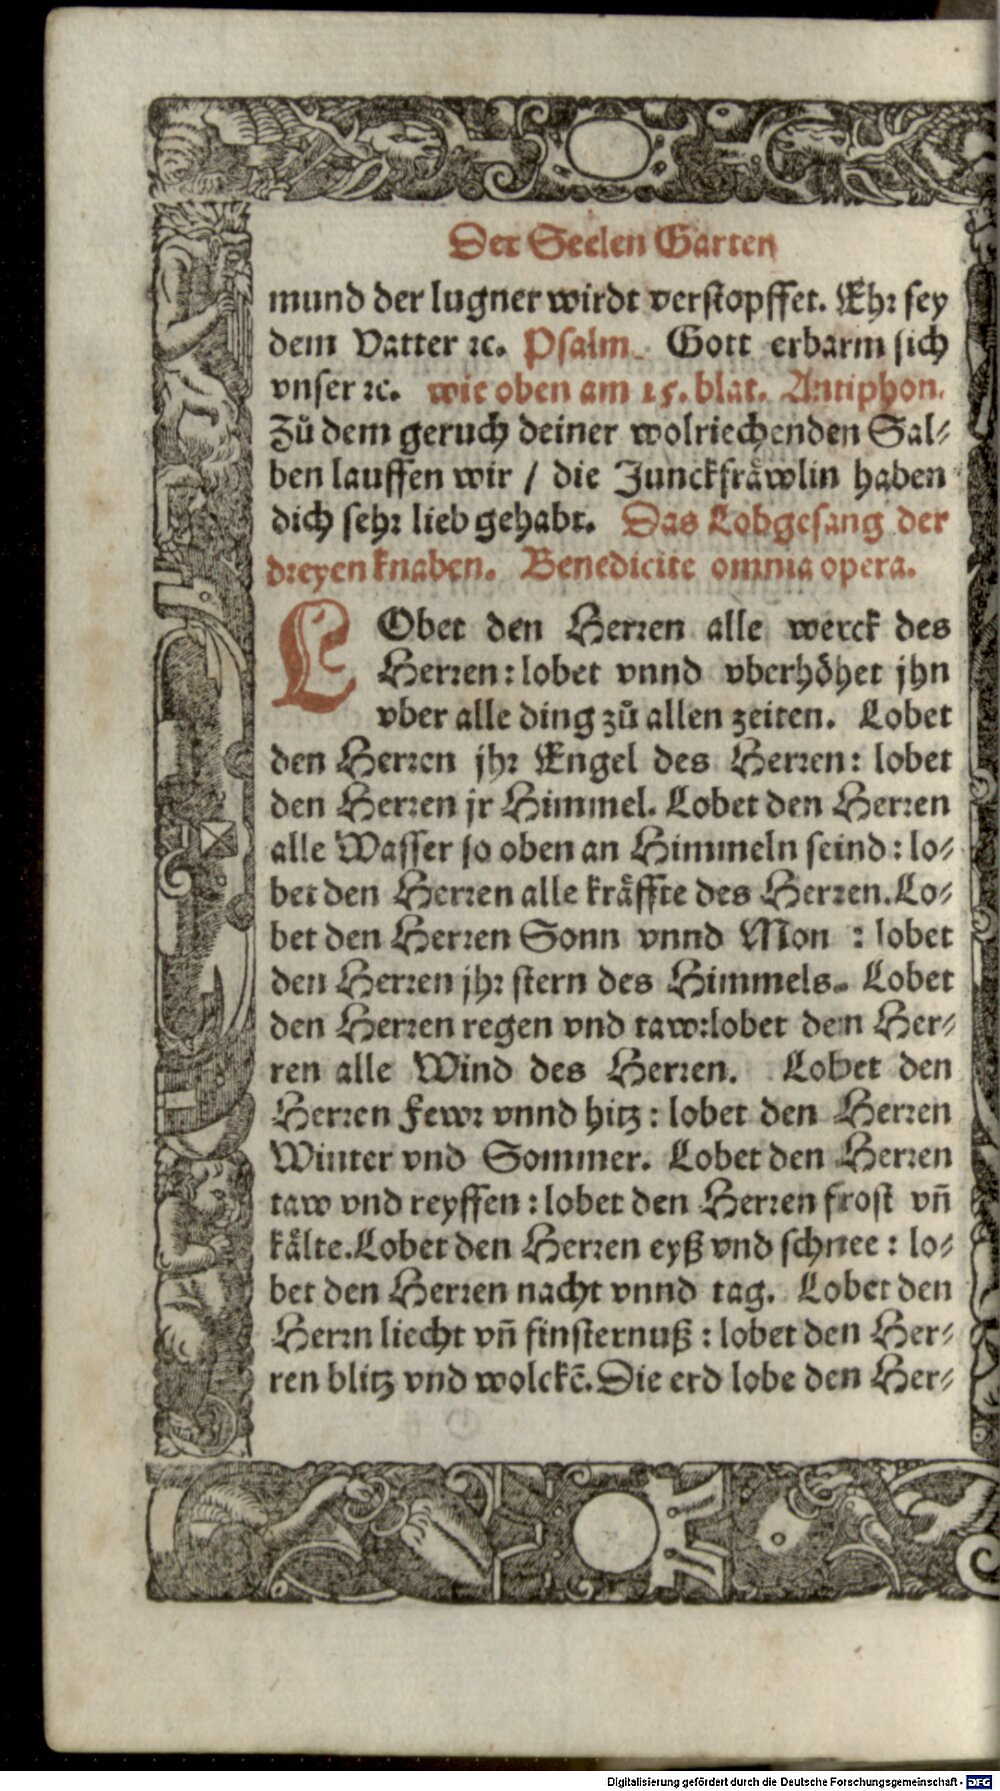 Der Seelen Garten
mund der lugner wirdt verstopffet. Ehr sey
dem Vatter ⁊c. Psalm. Gott erbarm sich
vnser ⁊c. wie oben am 15. blat. Antiphon.
Zů dem geruch deiner wolriechenden Sal⸗
ben lauffen wir / die Junckfraͤwlin haben
dich sehr lieb gehabt. Das Lobgesang der
dreyen knaben. Benedicite omnia opera.
LObet den Herren alle werck des
Herren: lobet vnnd vberhoͤhet jhn
vber alle ding zů allen zeiten. Lobet
den Herren jhr Engel des Herren: lobet
den Herren jr Himmel. Lobet den Herren
alle Wasser so oben an Himmeln seind: lo⸗
bet den Herren alle kraͤffte des Herren. Lo⸗
bet den Herren Sonn vnnd Mon : lobet
den Herren jhr stern des Himmels. Lobet
den Herren regen vnd taw: lobet den Her⸗
ren alle Wind des Herren. Lobet den
Herren Fewr vnnd hitz: lobet den Herren
Winter vnd Sommer. Lobet den Herren
taw vnd reyffen: lobet den Herren frost vn̄
kaͤlte. Lobet den Herren eyß vnd schnee: lo⸗
bet den Herren nacht vnnd tag. Lobet den
Herrn liecht vn̄ finsternuß: lobet den Her⸗
ren blitz vnd wolckē. Die erd lobe den Her⸗
Digitalisierung gefördert durch die Deutsche Forschungsgemeinschaft - DFG